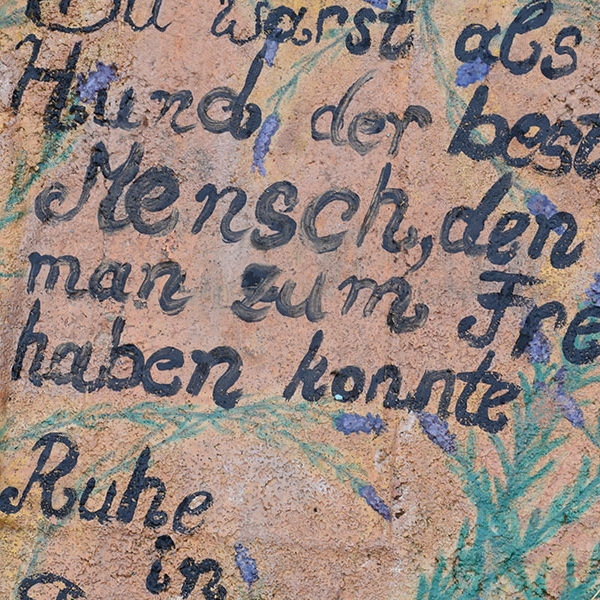 Du warst als
Hund der best
Mensch, den
man zum Fre
haben konnte
Ruhe
in